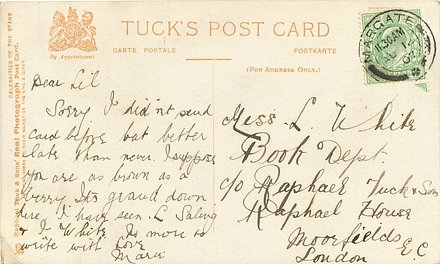 TUCK'S POST CARD
CARTE POSTALE
POSTKARTE
By Appointment
(FOR ADDRESS ONLY.)
MARGATE
11.30AM
CELEBRITIES OF THE STAGE
Raphael Tuck & Sons' "Real Photograph" Post Card
Dear Lil
Sorry I didn't send
card before but better
late than never. I suppose
you are as brown as a
berry Its grand down
here I have seen L
& J White No more to
write with love
Miss L. White
Book Dept.
c/o Raphael Tuck & Sons
Raphael House
Moorfields
London E C